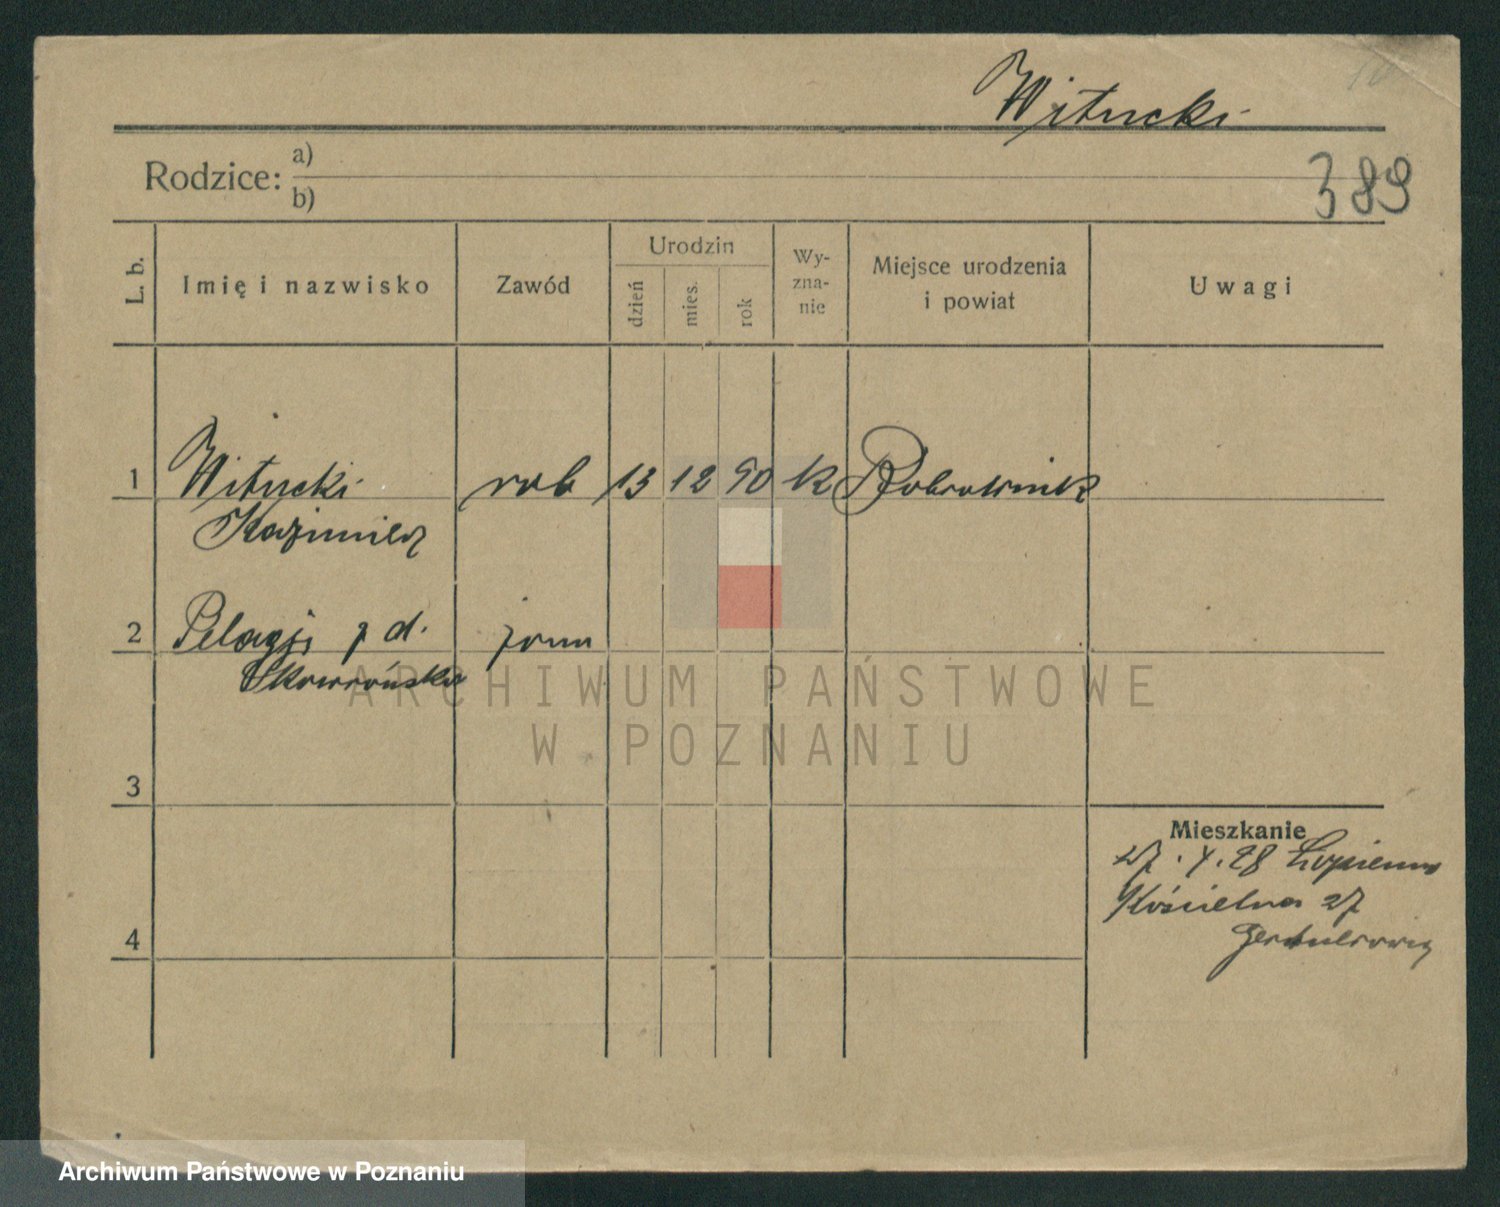 Witucki
389
Rodzice: a)
b)
L. b.
Imię i nazwisko
Zawód
Urodzin
dzień
mies.
rok
Wy-
zna-
nie
Miejsce urodzenia
i powiat
Uwagi
1 Witucki rob 13 12 90 k Bobrownik
Kazimierz
2 Pelagj. z d. żona
Skowrońska
3
4
Mieszkanie
27. 4. 28 Łopienno
Kościelna 27
ARCHIWUM PAŃSTWOWE
W POZNANIU
Archiwum Państwowe w Poznaniu